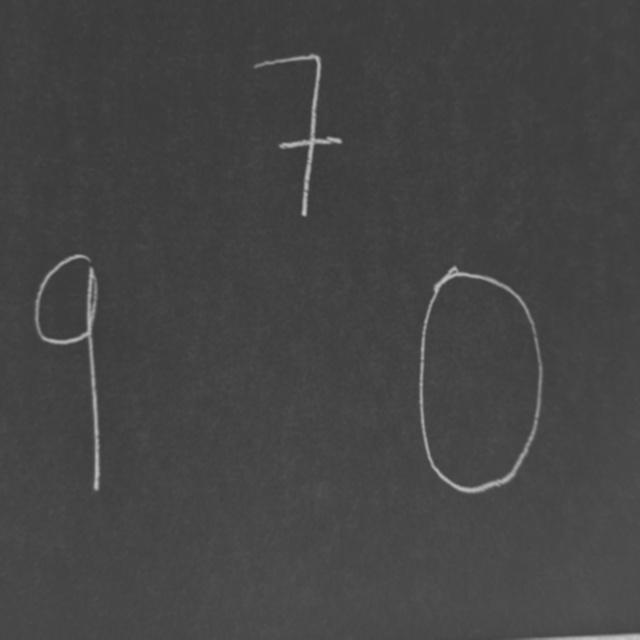 7
9 0